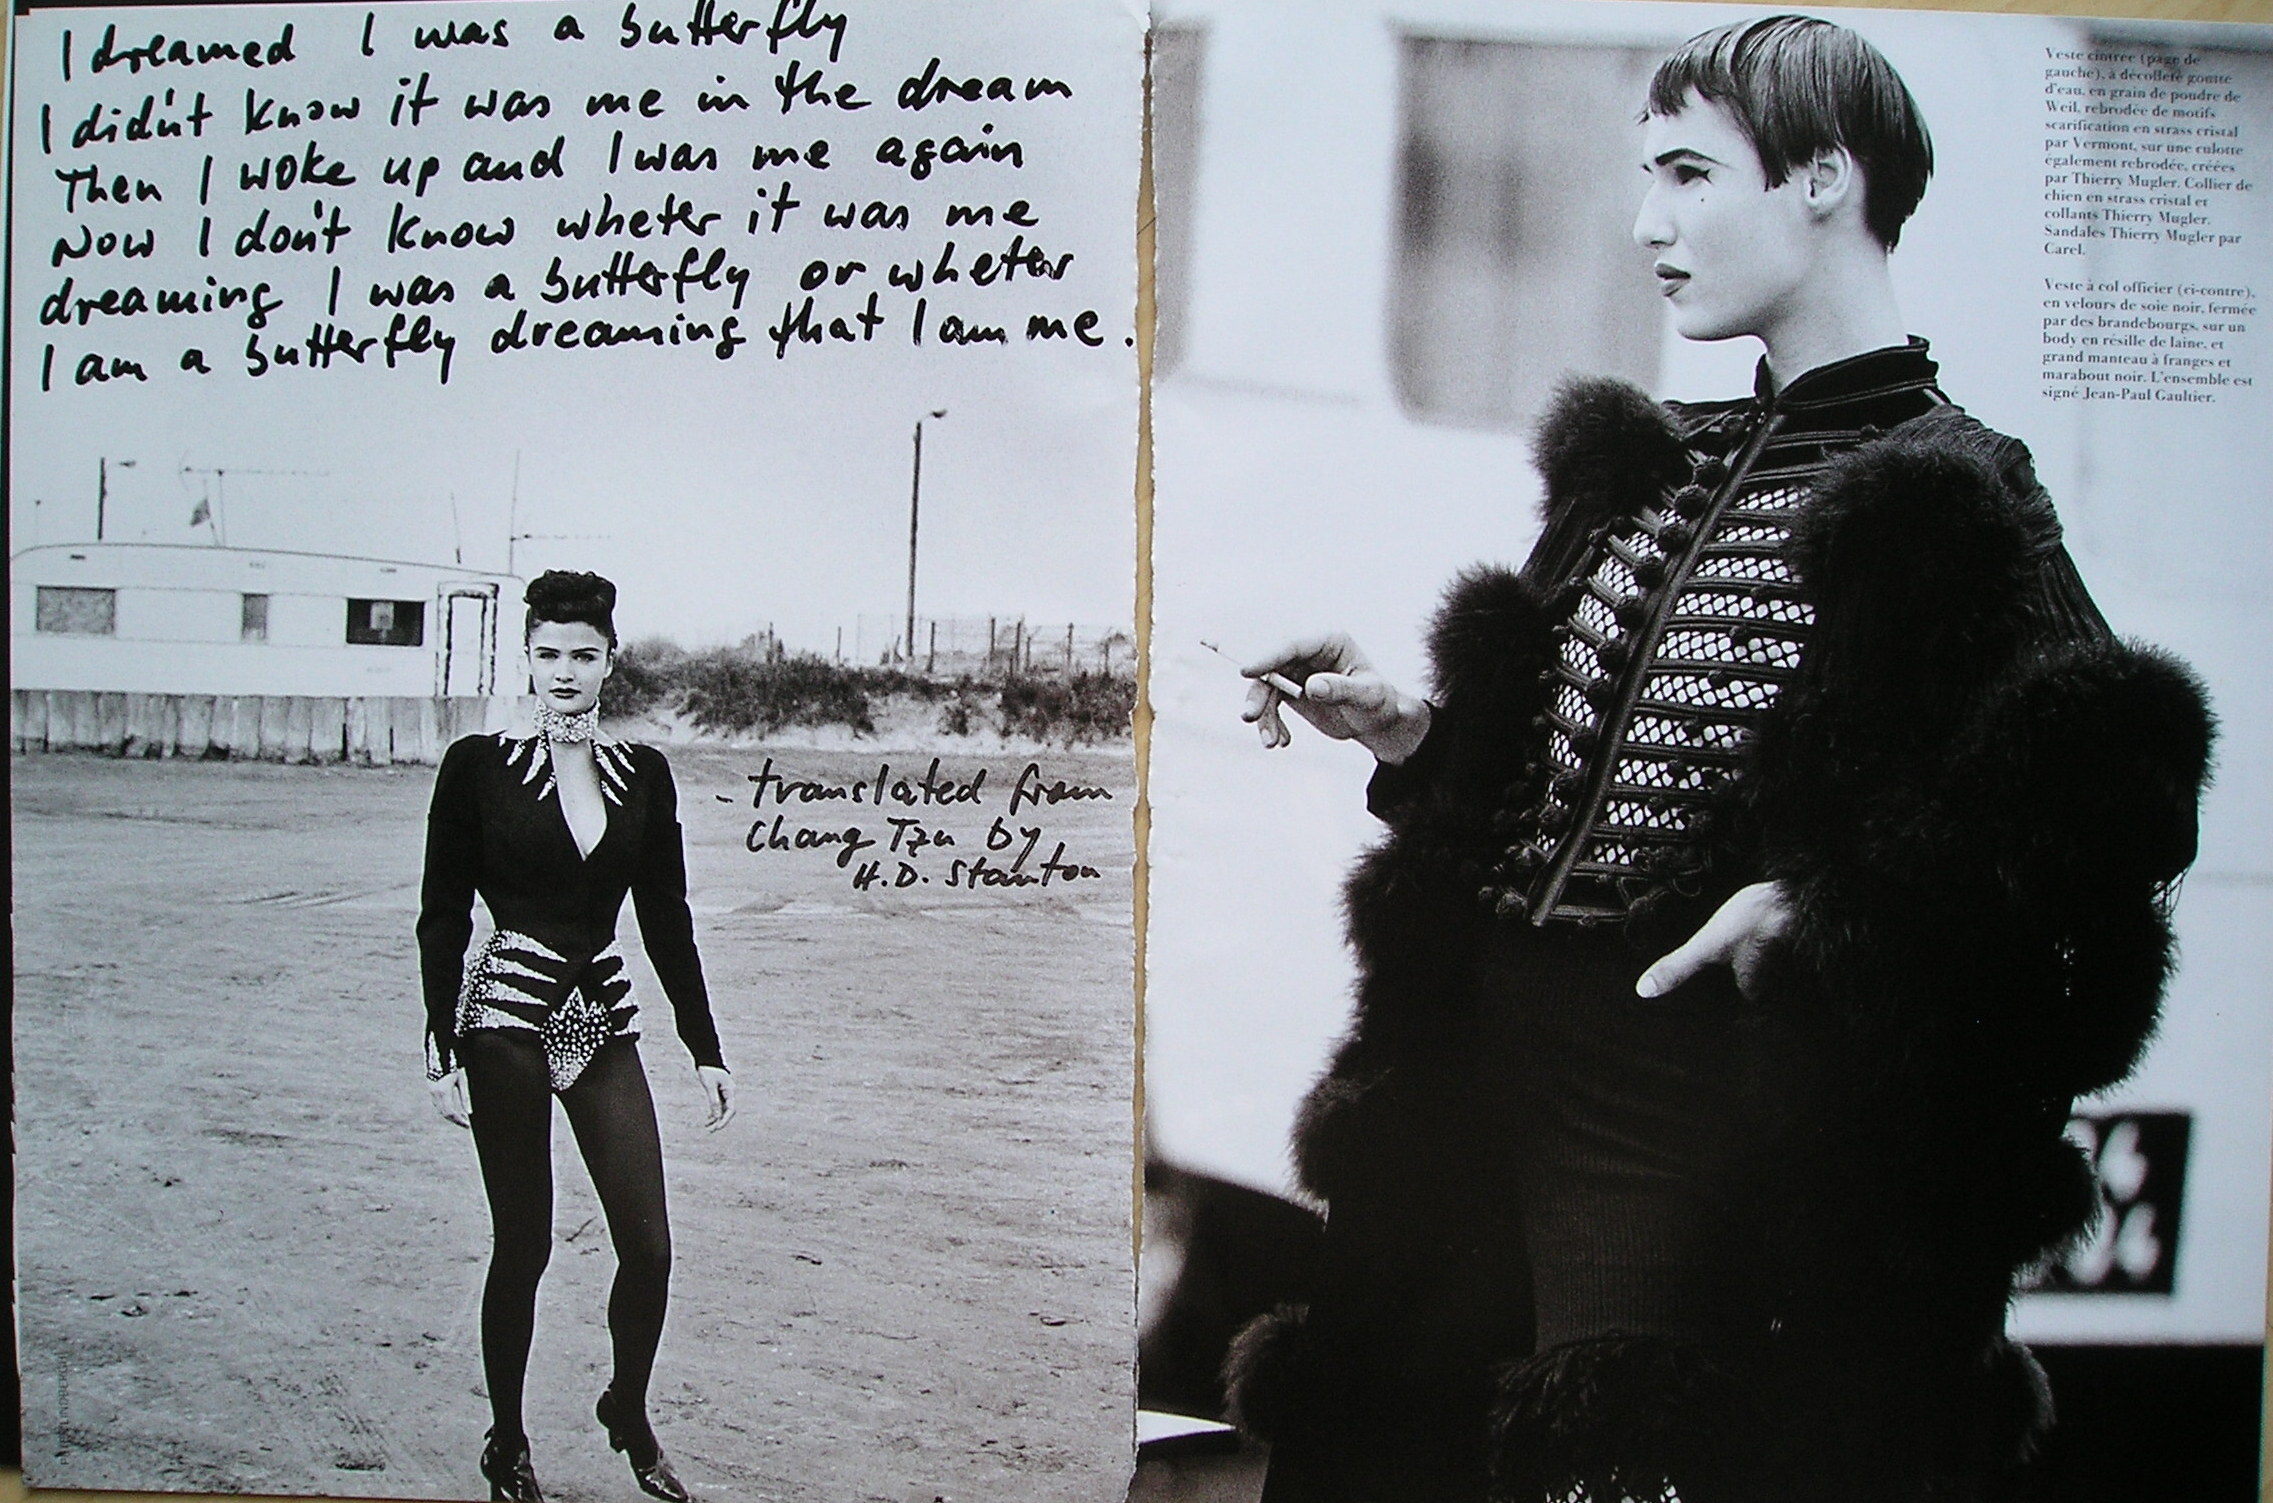 I dreamed I was a butterfly
I didn't know it was me in the dream
Then I woke up and I was me again
Now I don't know wheter it was me
dreaming I was a butterfly or wheter
I am a butterfly dreaming that I am me.
- translated from
Chang Tzu by
H.D. Stanton
Veste cintrée (page de
gauche), à décolleté goutte
d'eau, en grain de poudre de
Weil, rebrodée de motifs
scarification en strass cristal
par Vermont, sur une culotte
également rebrodée, créées
par Thierry Mugler. Collier de
chien en strass cristal et
collants Thierry Mugler.
Sandales Thierry Mugler par
Carel.
Veste à col officier (ci-contre),
en velours de soie noir, fermée
par des brandebourgs, sur un
body en résille de laine, et
grand manteau à franges et
marabout noir. L'ensemble est
signé Jean-Paul Gaultier.